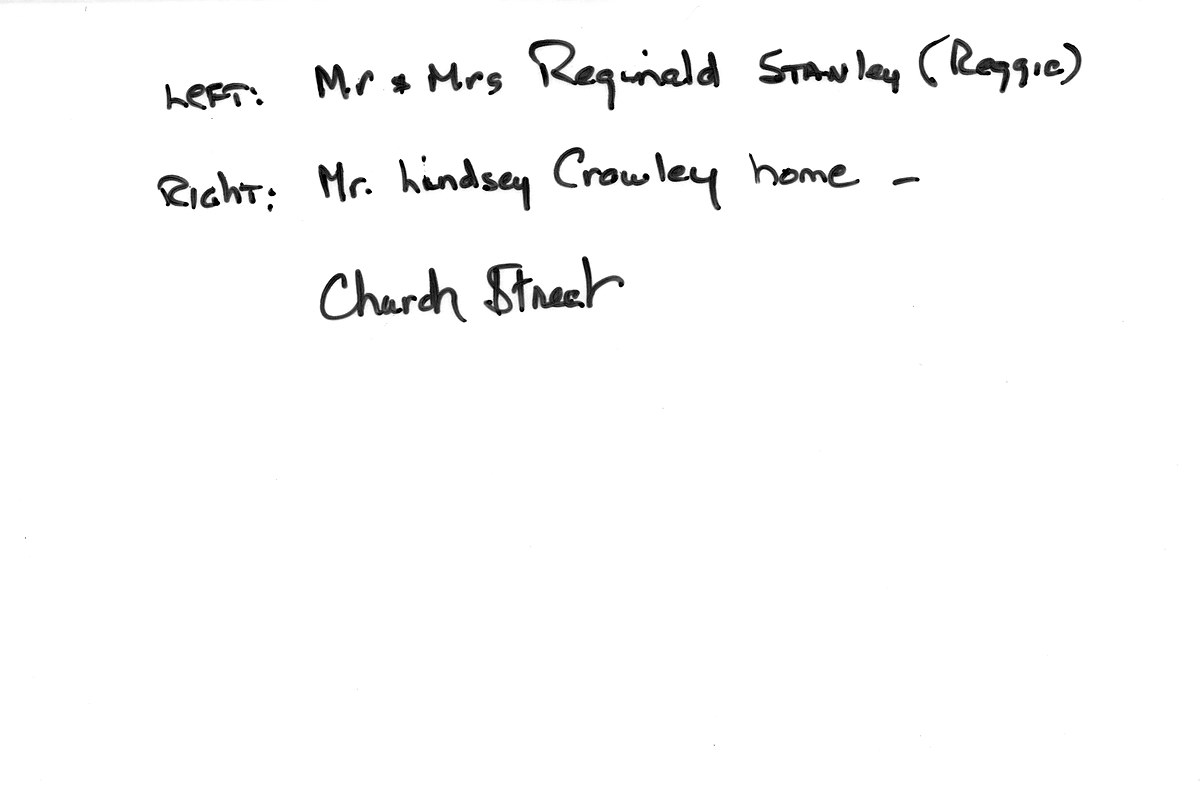 Left: Mr & Mrs Reginald Stanley (Reggie)
Right: Mr. Lindsey Crowley home -
Church Street